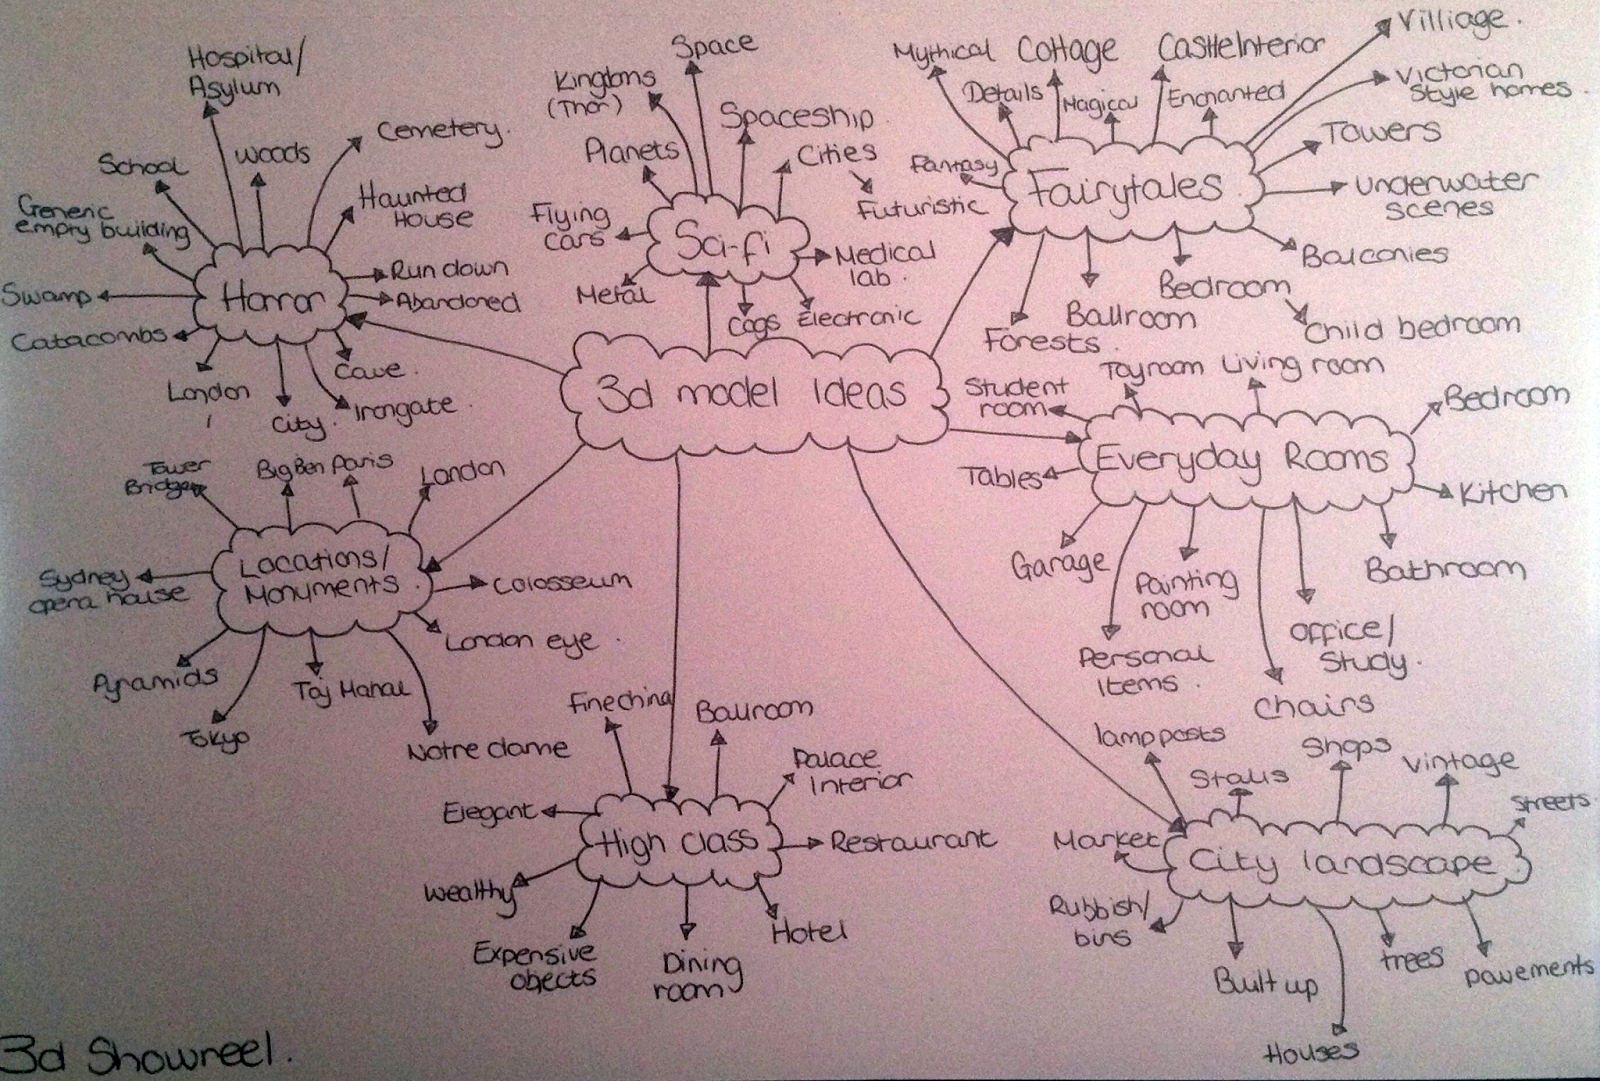 3d model Ideas
Horror
Hospital/
Asylum
School
Woods
Cemetery.
Generic
empty building
Haunted
House
Run down
Abandoned
Swamp
Catacombs
London
City.
Cave.
Irongate.
Sci-fi
Space
Kingdoms
(Thor)
Spaceship
Planets
Cities
Futuristic
Flying
cars
Medical
lab.
Metal
Cogs
Electronic
Fairytales
Mythical
Cottage
Castle Interior
Villiage.
Details
Magical
Enchanted
Victorian
Style homes.
Towers
Fantasy
Underwater
scenes
Balconies
Bedroom
Child bedroom
Ballroom
Forests.
Everyday Rooms
Student
room
Toyroom
Living room
Bedroom
Tables
Kitchen
Garage
Painting
room
Bathroom
Personal
Items.
Office/
Study.
Chairs
Locations/
Monuments.
Tower
Bridge
Big Ben
Paris
London
Sydney
opera house
Colosseum
London eye.
Pyramids
Taj Mahal
Tokyo
Notre dame
High Class
Fine china
Ballroom
Palace
Interior
Elegant
Restaurant
Wealthy
Hotel
Expensive
objects
Dining
room
City landscape
lampposts
Stalls
Shops
Vintage
Streets
Market
Rubbish/
bins
Built up
trees
pavements
Houses
3d Showreel.